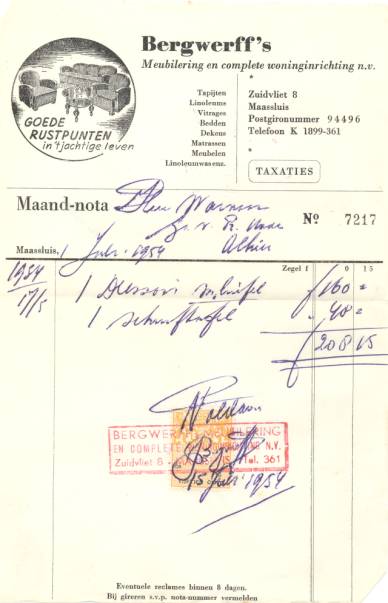 GOEDE
RUSTPUNTEN
in 't jachtige leven
Bergwerff's
Meubilering en complete woninginrichting n.v.
Tapijten
Linoleums
Vitrages
Bedden
Dekens
Matrassen
Meubelen
Linoleumwasenz.
*
Zuidvliet 8
Maassluis
Postgironummer 94496
Telefoon K 1899-361
*
TAXATIES
Maand-nota
Nº 7217
Alhier
Maassluis, 1 Juli 1954
Zegel f 0 15
1954
17/5 1 f 160 =
1 schuiftafel " 48 =
f 208 15
Voldaan
BERGWERFF MEUBILERING
EN COMPLETE N.V.
Zuidvliet 8 - Tel. 361
15 Juli 1954
Eventuele reclames binnen 8 dagen.
Bij gireren s.v.p. nota-nummer vermelden